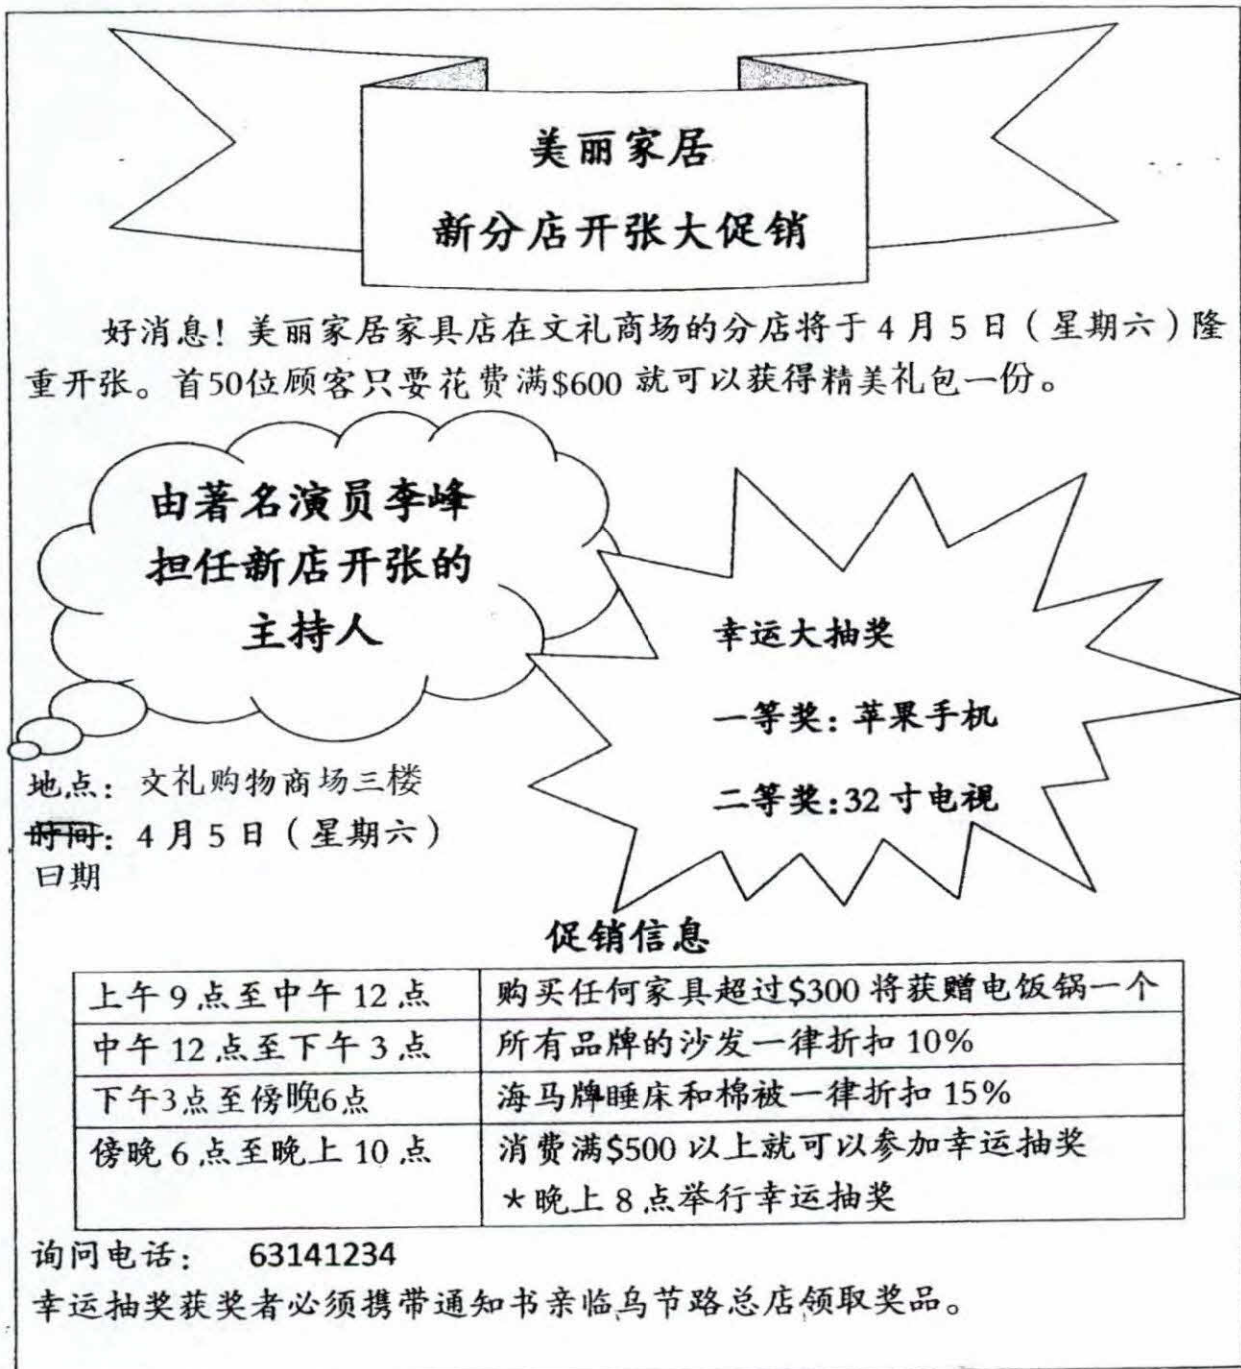 美丽家居
新分店开张大促销
好消息！美丽家居家具店在文礼商场的分店将于 4 月 5 日（星期六）隆
重开张。首50位顾客只要花费满$600 就可以获得精美礼包一份。
由著名演员李峰
担任新店开张的
主持人
幸运大抽奖
一等奖：苹果手机
二等奖：32 寸电视
地点：文礼购物商场三楼
时间：4 月 5 日（星期六）
日期
促销信息
上午 9 点至中午 12 点 购买任何家具超过$300 将获赠电饭锅一个
中午 12 点至下午 3 点 所有品牌的沙发一律折扣 10%
下午3点至傍晚6点 海马牌睡床和棉被一律折扣 15%
傍晚 6 点至晚上 10 点 消费满$500 以上就可以参加幸运抽奖
＊晚上 8 点举行幸运抽奖
询问电话： 63141234
幸运抽奖获奖者必须携带通知书亲临乌节路总店领取奖品。